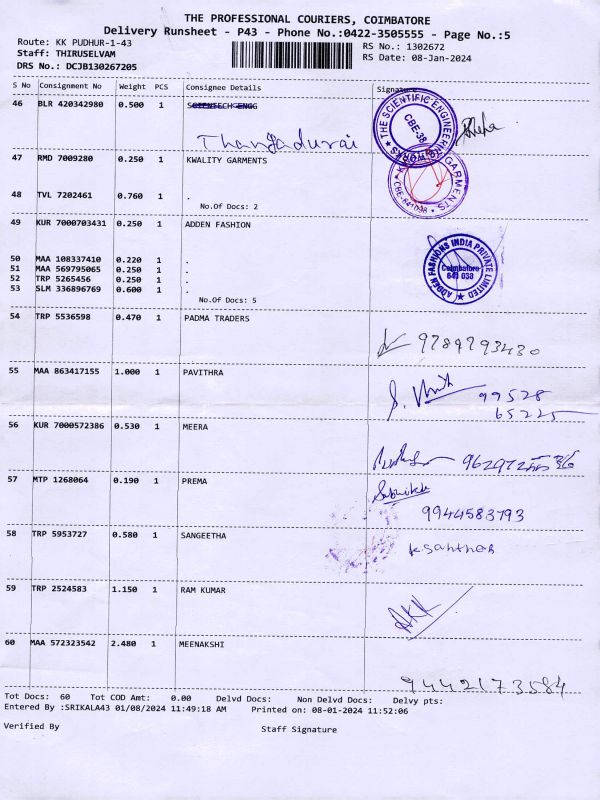 THE PROFESSIONAL COURIERS, COIMBATORE
Delivery Runsheet - P43 - Phone No.:0422-3505555 - Page No.:5
Route: KK PUDHUR-1-43
Staff: THIRUSELVAM
DRS No.: DCJB130267205
RS No.: 1302672
RS Date: 08-Jan-2024
S No Consignment No Weight PCS Consignee Details Signature
46 BLR 420342980 0.500 1 SCIENTECH ENGG
Thangadurai
THE SCIENTIFIC ENGINEERING WORKS
CBE-38
47 RMD 7009280 0.250 1 KWALITY GARMENTS
GARMENTS
48 TVL 7202461 0.760 1 .
No.Of Docs: 2
49 KUR 7000703431 0.250 1 ADDEN FASHION
ADDEN FASHIONS INDIA PRIVATE LIMITED
Coimbatore
641 038
50 MAA 108337410 0.220 1 .
51 MAA 569795065 0.250 1 .
52 TRP 5265456 0.250 1 .
53 SLM 336896769 0.600 1 .
No.Of Docs: 5
54 TRP 5536598 0.470 1 PADMA TRADERS
9789793430
55 MAA 863417155 1.000 1 PAVITHRA
99528
65225
56 KUR 7000572386 0.530 1 MEERA
57 MTP 1268064 0.190 1 PREMA
9944583793
58 TRP 5953727 0.580 1 SANGEETHA
59 TRP 2524583 1.150 1 RAM KUMAR
60 MAA 572323542 2.480 1 MEENAKSHI
9442173584
Tot Docs: 60 Tot COD Amt: 0.00 Delvd Docs: Non Delvd Docs: Delvy pts:
Entered By :SRIKALA43 01/08/2024 11:49:18 AM Printed on: 08-01-2024 11:52:06
Verified By Staff Signature